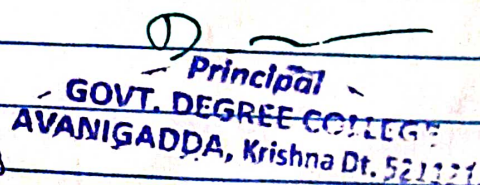 Principal
GOVT. DEGREE COLLEGE
AVANIGADDA, Krishna Dt. 521121